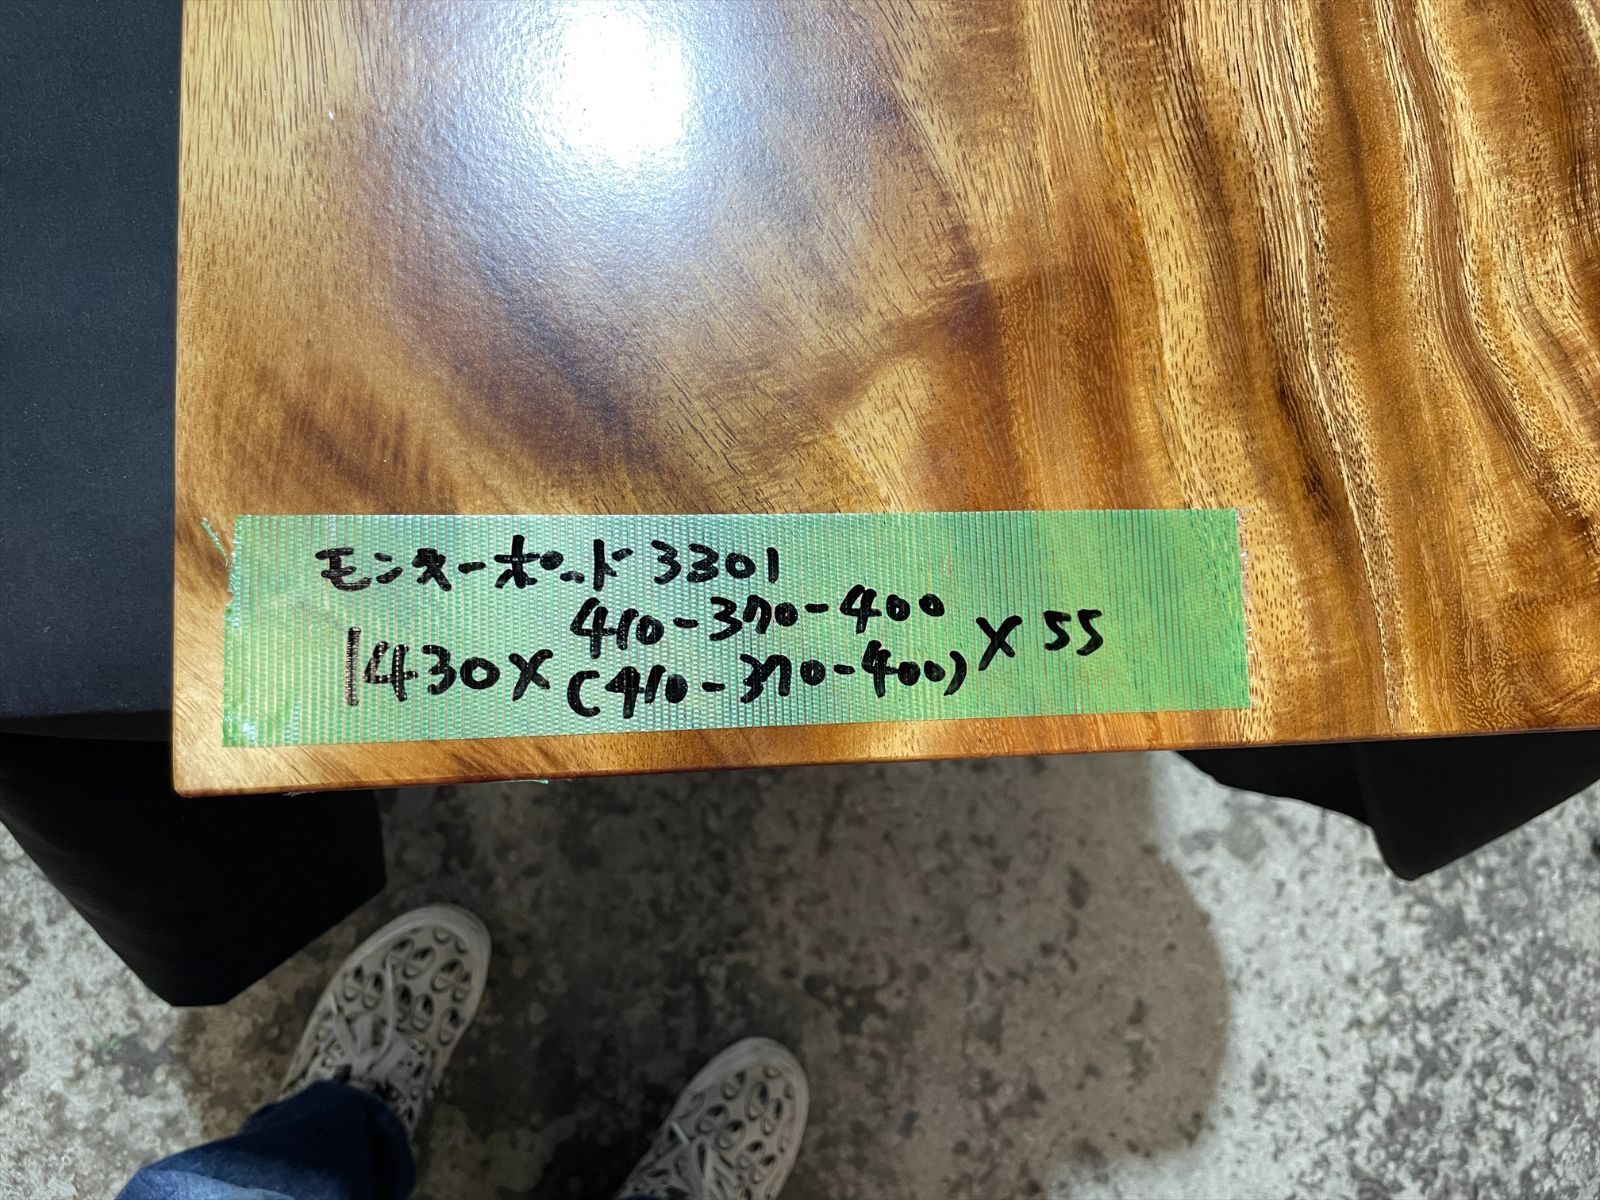 モンキーポッド 3301
410-370-400
1430×(410-370-400)×55